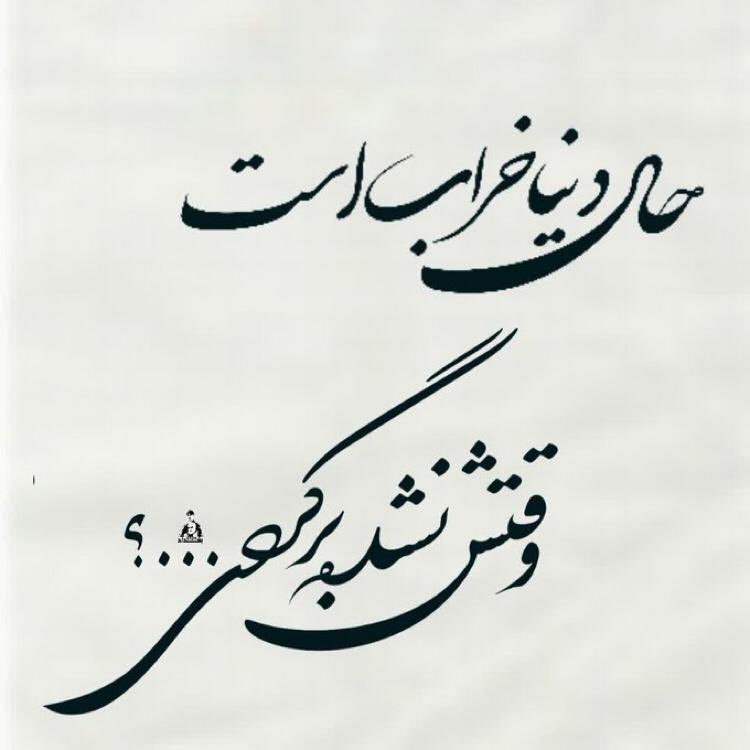 حال دنیا خراب است
وقتش نشده برگردی....؟